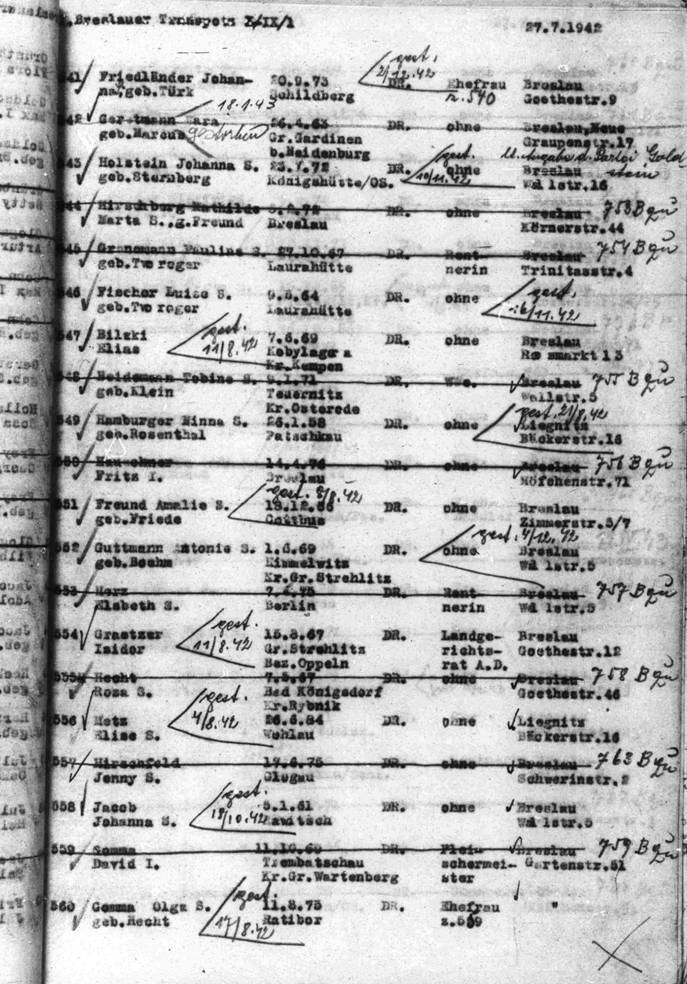 Breslauer Transports X/IX/1 27.7.1942
541 Friedländer Johan- 20.9.73 gest. 2/12.42 DR. Ehefrau Breslau
na, geb. Türk Schildberg z. 540 Goethestr.9
542 18.1.43 26.4.63 DR. ohne Breslau,Neue
geb.Marcus gestorben Gr.Gardinen Graupenstr.17
b.Neidenburg
543 Holstein Johanna S. 23.7.72 DR. ohne gest. 10/11.42 Breslau
geb.Sternberg Königshütte/OS. Wallstr.16
544 Hirschberg Mathilde DR. ohne Breslau 753 Bqu
Marta S.,g.Freund Breslau Körnerstr.44
545 Pauline S. 27.10.67 DR. Rent- Breslau 754 Bqu
geb.Tworoger Laurahütte nerin Trinitasstr.4
546 Fischer Luise S. 9.8.64 DR. ohne gest.
geb.Tworoger Laurahütte 26/11.42
547 Bilski gest. 7.6.69 DR. ohne Breslau
Elias 11/8.42 Kobylagora Rossmarkt 13
Kr.Kempen
548 Heidemann Tobine S. 9.1.71 DR. Wwe. Breslau 755 Bqu
geb.Klein Wallstr.5
Kr.Osterode
549 Hamburger Minna S. 26.1.58 DR. ohne gest. 21/8.42 Liegnitz
geb.Rosenthal Patschkau Bäckerstr.16
550 14.4.76 DR. ohne Breslau 756 Bqu
Fritz I. Breslau Höfchenstr.71
551 Freund Amalie S. gest. 8/8.42 DR. ohne Breslau
geb.Friede Cottbus Zimmerstr.5/7
552 Guttmann Antonie S. 1.6.69 DR. ohne gest. 4/12.42 Breslau
geb.Boehm Himmelwitz Wallstr.5
Kr.Gr.Strehlitz
553 Herz DR. Rent- Breslau 757 Bqu
Elsbeth S. Berlin nerin Wallstr.5
554 Graetzer gest. 15.8.67 DR. Landge- Breslau
Isidor 11/8.42 Gr.Strehlitz richts- Goethestr.12
Bez.Oppeln rat A.D.
555 Hecht DR. ohne Breslau 758 Bqu
Rosa S. Bad Königsdorf Goethestr.46
Kr.Rybnik
556 Metz gest. 26.6.84 DR. ohne Liegnitz
Elise S. 4/8.42 Wohlau Bäckerstr.16
557 Hirschfeld DR. ohne Breslau 763 Bqu
Jenny S. Glogau Schwerinstr.2
558 Jacob gest. 5.1.61 DR. ohne Breslau
Johanna S. 18/10.42 Rawitsch Wallstr.5
559 Gomma DR. Flei- Breslau 759 Bqu
David I. Trembatschau schermei- Gartenstr.51
Kr.Gr.Wartenberg ster
560 Gomma Olga S. gest. 11.8.75 DR. Ehefrau "
geb.Hecht 17/8.42 Ratibor z.559